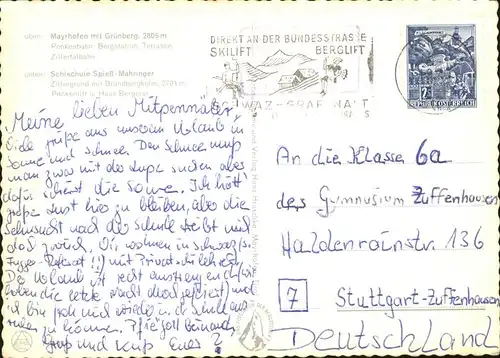 oben: Mayrhofen mit Grünberg, 2805 m
Penkenbahn: Bergstation, Terrasse
Zillertalbahn
unten: Schischule Spieß-Mahringer
Zillergrund mit Brandbergkolm, 2701 m
Penkenlift u. Haus Bergrast
DIREKT AN DER BUNDESSTRASSE
SKILIFT BERGLIFT
SCHWAZ-GRAFENAST
2 S
REPUBLIK ÖSTERREICH
Meine lieben Mitpennäler,
Viele Grüße aus unserem Urlaub in
Sonne und Schnee. Den Schnee muß
man zwar mit der Lupe suchen aber
dafür scheint die Sonne. Ich hätt
große Lust hier zu bleiben, aber die
Sehnsucht nach der Schule treibt mich
doch zurück. Wir wohnen in Schwaz (s.
Fugger-Referat!!) mit
Der Urlaub ist recht anstrengend (wir
haben die letzte Nacht durchgefeiert) und
ich bin froh mich wieder in d. Schule aus-
ruhen zu können.
Gruß und Kuß Euer
An die Klasse 6a
des Gymnasium Zuffenhausen
Haldenrainstr. 136
7 Stuttgart-Zuffenhausen
Deutschland